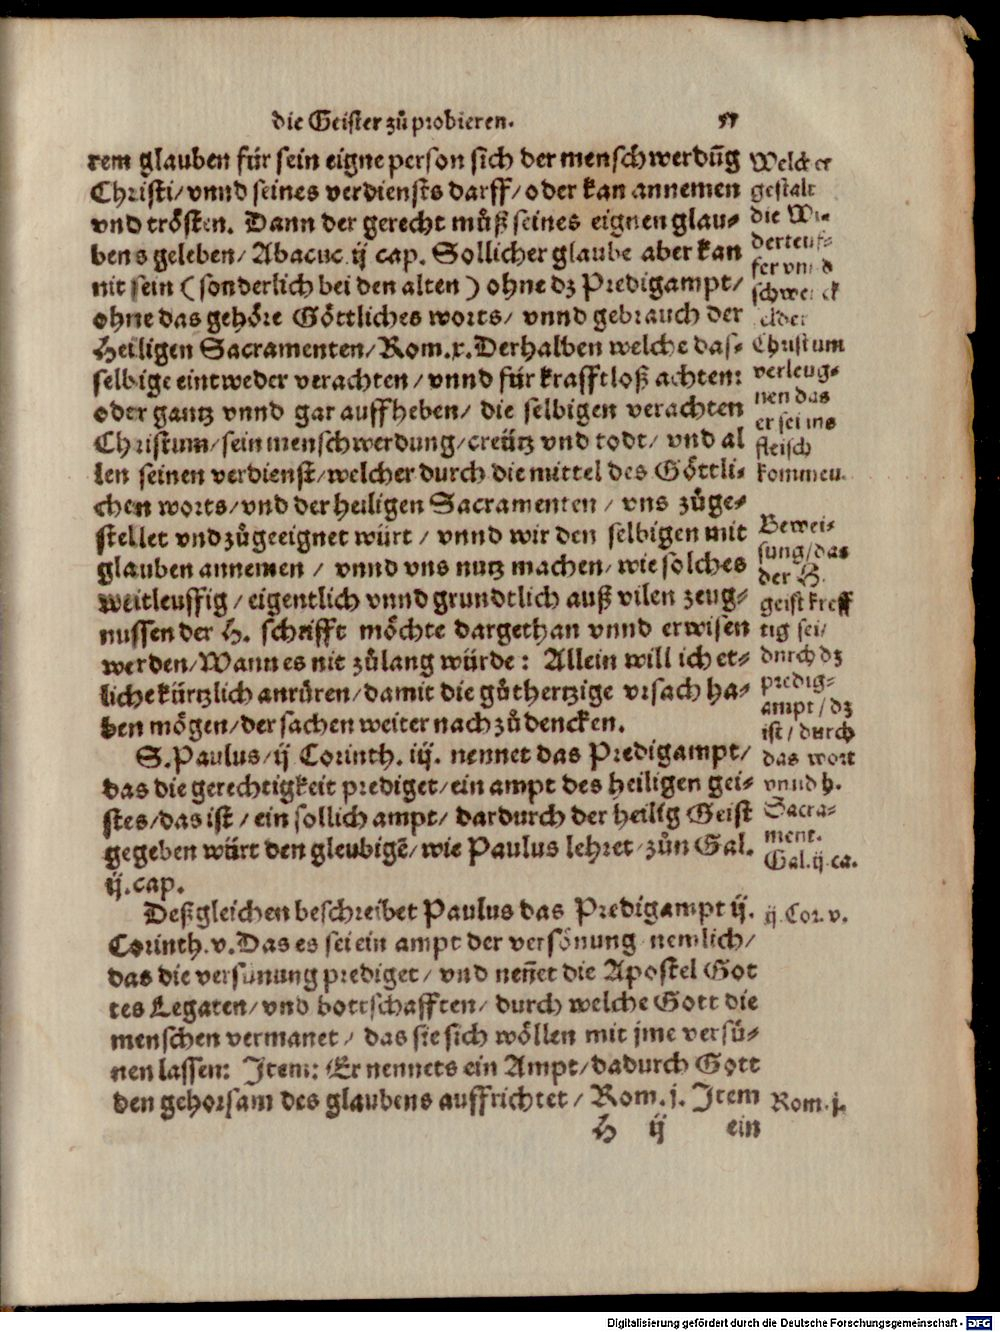 die Geister zů probieren.
rem glauben für sein eigne person sich der menschwerdūg
Christi/ vnnd seines verdiensts darff/ oder kan annemen
vnd trösten. Dann der gerecht můß seines eignen glau-
bens geleben/ Abacuc ij cap. Sollicher glaube aber kan
nit sein (sonderlich bei den alten) ohne dz Predigampt/
ohne das gehöre Göttliches worts/ vnnd gebrauch der
Heiligen Sacramenten/ Rom.x. Derhalben welche das-
selbige eintweder verachten/ vnnd für krafftloß achten:
oder gantz vnnd gar auffheben/ die selbigen verachten
Christum/ sein menschwerdung/ creütz vnd todt/ vnd al
len seinen verdienst/ welcher durch die mittel des Göttli-
chen worts/ vnd der heiligen Sacramenten/ vns zůge-
stellet vnd zůgeeignet würt/ vnnd wir den selbigen mit
glauben annemen/ vnnd vns nutz machen/ wie solches
weitleuffig/ eigentlich vnnd grundtlich auß vilen zeug-
nussen der H. schrifft möchte dargethan vnnd erwisen
werden/ Wann es nit zůlang würde: Allein will ich et-
liche kürtzlich anrüren/ damit die gůthertzige vrsach ha-
ben mögen/ der sachen weiter nach zů dencken.
S. Paulus/ ij Corinth. iij. nennet das Predigampt/
das die gerechtigkeit prediget/ ein ampt des heiligen gei-
stes/ das ist/ ein sollich ampt/ dardurch der heilig Geist
gegeben würt den gleubigē/ wie Paulus lehret/ zůn Gal.
ij. cap.
Deßgleichen beschreibet Paulus das Predigampt ij.
Corinth. v. Das es sei ein ampt der versönung nemlich/
das die versünung prediget/ vnd neñet die Apostel Got
tes Legaten/ vnd bottschafften/ durch welche Gott die
menschen vermanet/ das sie sich wöllen mit jme versü-
nen lassen: Item: Er nennets ein Ampt/ dadurch Gott
den gehorsam des glaubens auffrichtet/ Rom. j. Item
H ij ein
Welcher
gestalt
die Wi-
derteuf-
fer vnnd
schwenck
felder
Christum
verleug-
nen das
er sei ins
fleisch
kommen.
Bewei-
sung/ das
der H.
geist kreff
tig sei/
durch dz
predig-
ampt/ dz
ist/ durch
das wort
vnnd h.
Sacra-
ment.
Gal. ij. ca.
ij. Cor. v.
Rom. j.
Digitalisierung gefördert durch die Deutsche Forschungsgemeinschaft - DFG